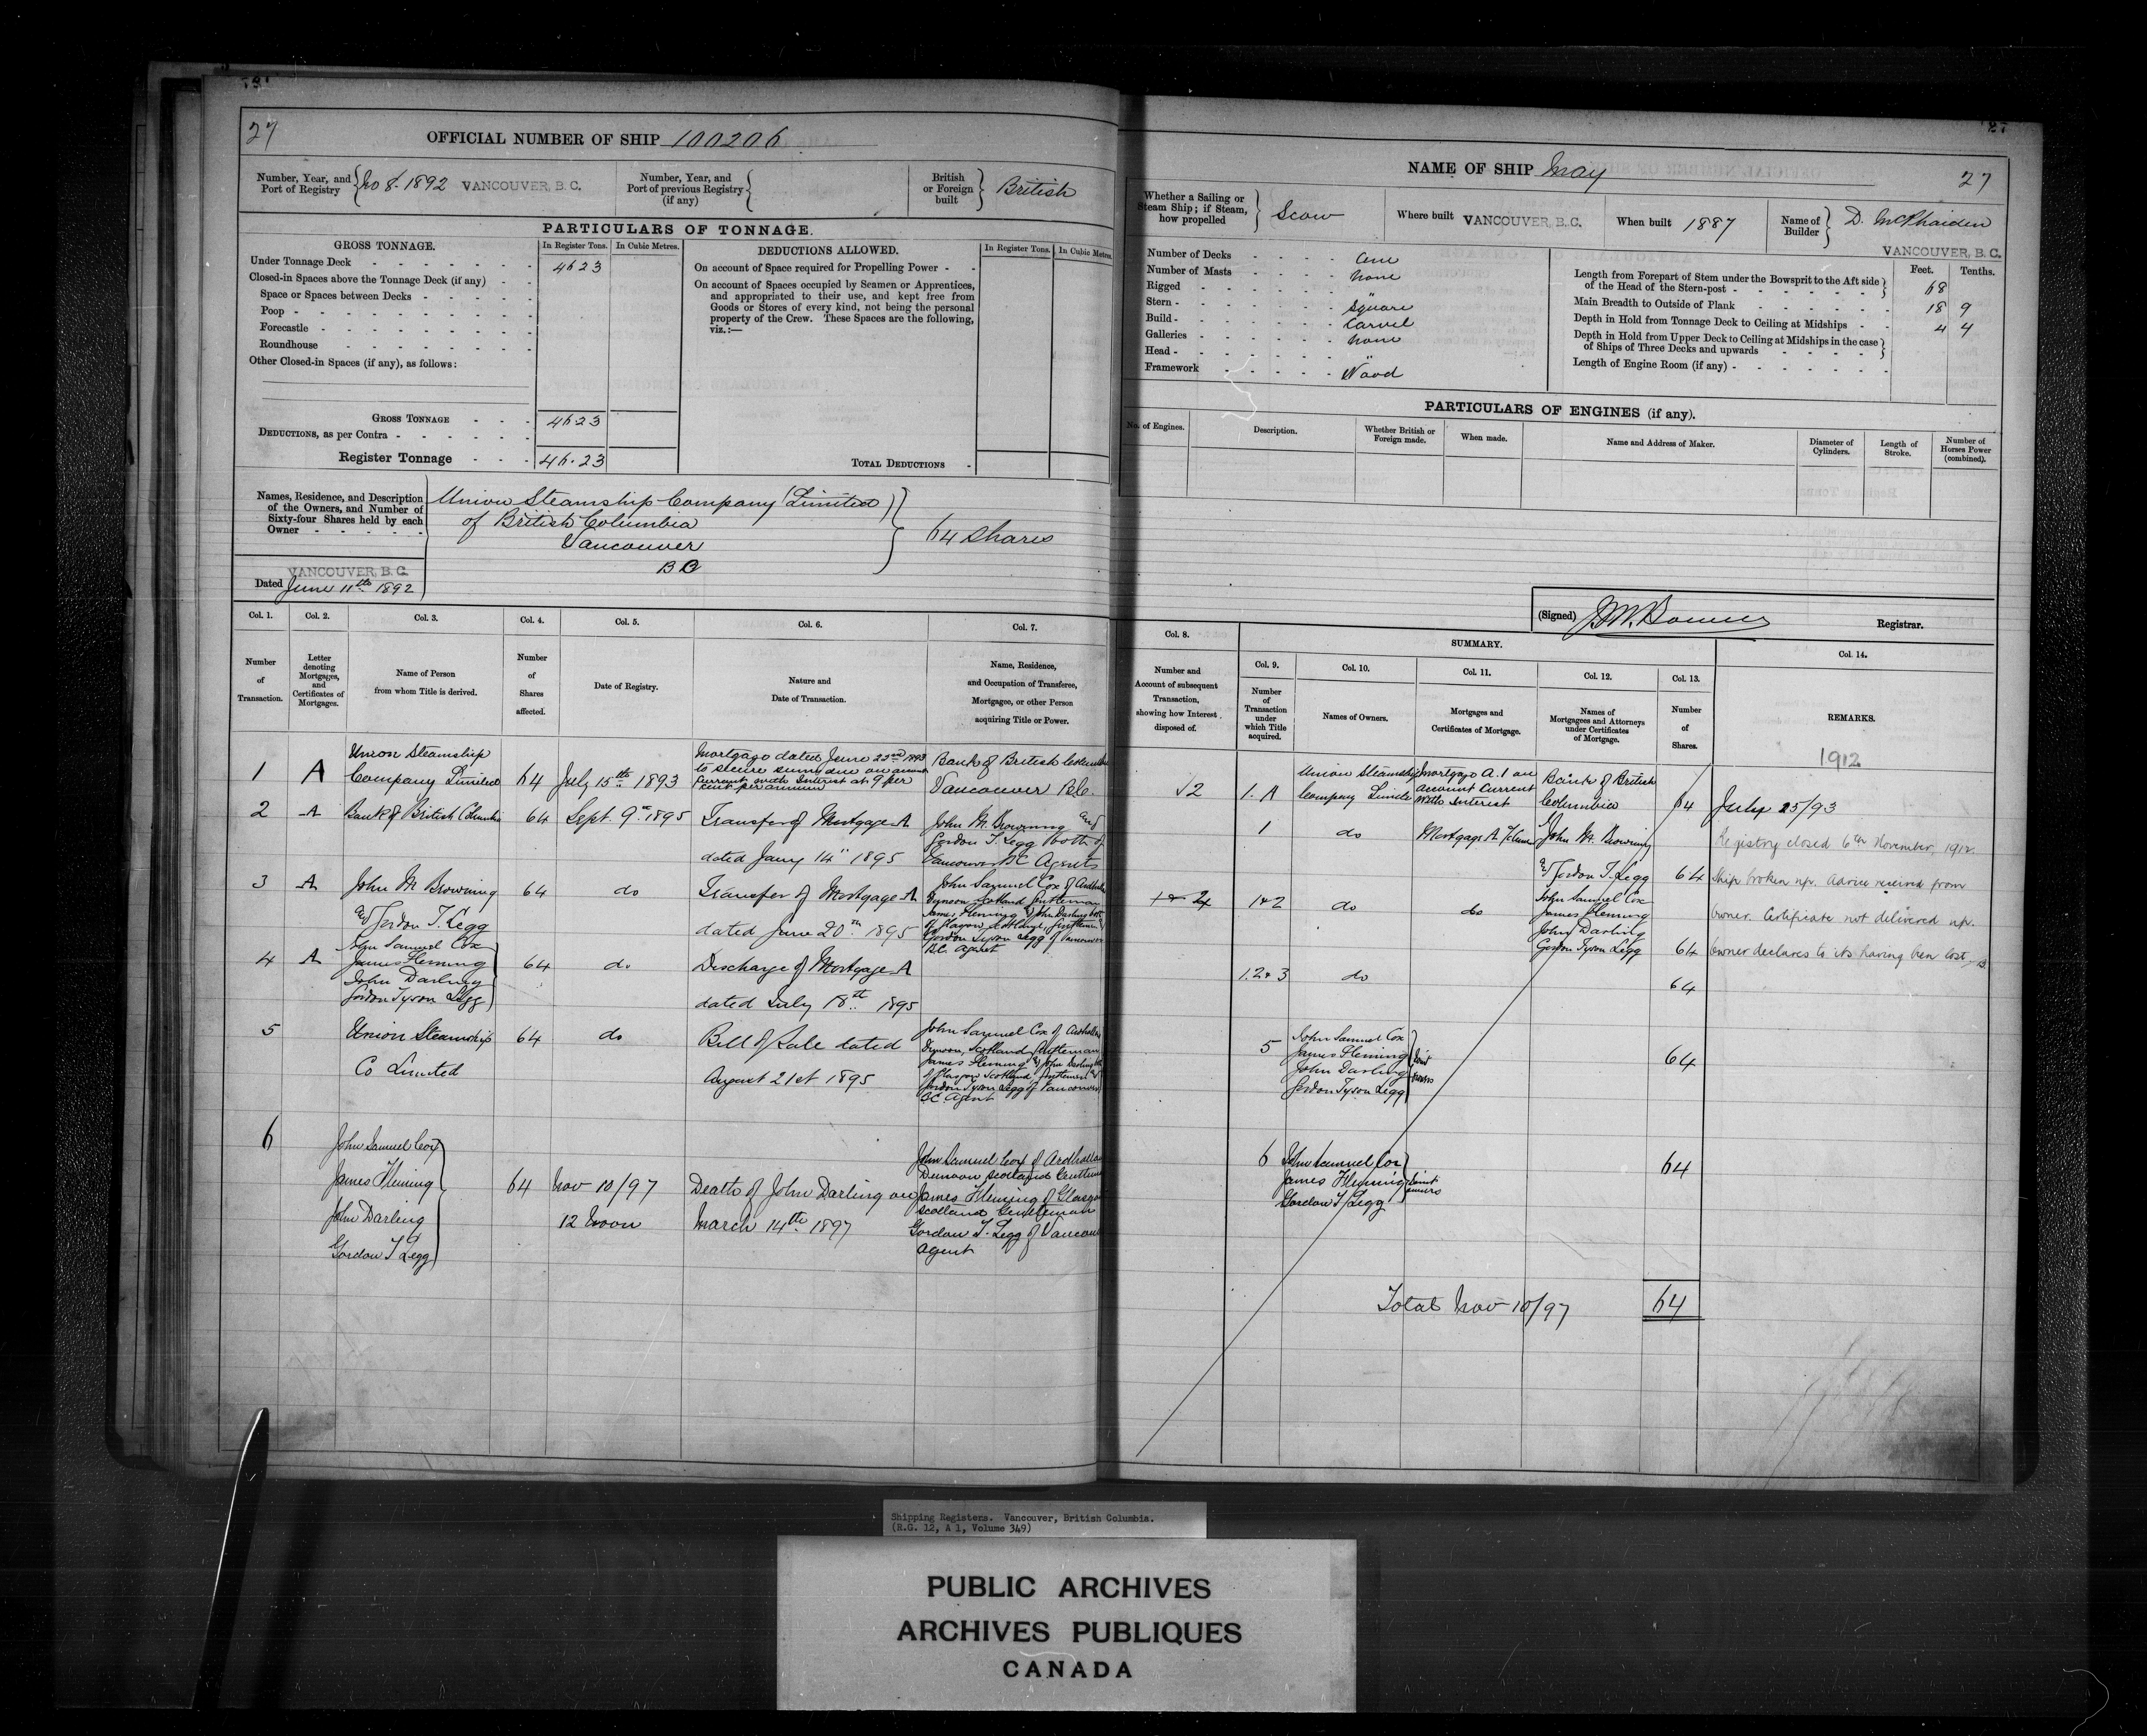 27
OFFICIAL NUMBER OF SHIP 100206
Number, Year, and Port of Registry
No 8-1892 VANCOUVER, B.C.
Number, Year, and Port of previous Registry (if any)
British or Foreign built
British
PARTICULARS OF TONNAGE.
GROSS TONNAGE.
In Register Tons.
In Cubic Metres.
DEDUCTIONS ALLOWED.
In Register Tons.
In Cubic Metres.
Under Tonnage Deck
4623
Closed-in Spaces above the Tonnage Deck (if any)
Space or Spaces between Decks
Poop
Forecastle
Roundhouse
Other Closed-in Spaces (if any), as follows:
On account of Space required for Propelling Power
On account of Spaces occupied by Seamen or Apprentices,
and appropriated to their use, and kept free from
Goods or Stores of every kind, not being the personal
property of the Crew. These Spaces are the following,
viz.:—
GROSS TONNAGE
4623
DEDUCTIONS, as per Contra
Register Tonnage
46.23
TOTAL DEDUCTIONS
Names, Residence, and Description
of the Owners, and Number of
Sixty-four Shares held by each
Owner
Union Steamship Company (Limited)
of British Columbia
Vancouver
B C
64 Shares
VANCOUVER, B.C.
Dated June 11th 1892
Col. 1.
Col. 2.
Col. 3.
Col. 4.
Col. 5.
Col. 6.
Col. 7.
Number of Transaction.
Letter denoting Mortgages, and Certificates of Mortgages.
Name of Person from whom Title is derived.
Number of Shares affected.
Date of Registry.
Nature and Date of Transaction.
Name, Residence, and Occupation of Transferee, Mortgagee, or other Person acquiring Title or Power.
1 A Union Steamship
Company Limited
64 July 15th 1893
Mortgage dated June 22nd 1893
to secure sums due on account
current with Interest at 9 per
cent per annum
Bank of British Columbia
Vancouver B.C.
2 A Bank of British Columbia 64 Sept. 9th 1895
Transfer of Mortgage A
dated Jany 14th 1895
John M. Browning and
Gordon T. Legg both of
Vancouver BC Agents
3 A John M Browning
and Gordon T. Legg
64 do
Transfer of Mortgage A
dated June 20th 1895
John Samuel Cox of
Dunoon Scotland Gentleman
James Fleming & John Darling both
of Glasgow Scotland, Gentlemen
Gordon Tyson Legg of Vancouver
B.C. Agent
4 A John Samuel Cox
James Fleming
John Darling
Gordon Tyson Legg
64 do
Discharge of Mortgage A
dated July 18th 1895
5 Union Steamship
Co Limited
64 do
Bill of Sale dated
August 21st 1895
John Samuel Cox of
Dunoon, Scotland, Gentleman
James Fleming & John Darling both
of Glasgow Scotland Gentlemen &
Gordon Tyson Legg of Vancouver
BC Agent
6 John Samuel Cox
James Fleming
John Darling
Gordon T Legg
64 Nov 10/97
12 Noon
Death of John Darling on
March 14th 1897
John Samuel Cox of
Dunoon Scotland Gentleman
James Fleming of Glasgow
Scotland Gentleman
Gordon T. Legg of Vancouver
Agent
27
NAME OF SHIP May
27
Whether a Sailing or Steam Ship; if Steam, how propelled
Scow
Where built VANCOUVER, B.C.
When built 1887
Name of Builder
D. McPhaiden
VANCOUVER, B.C.
Number of Decks One
Number of Masts None
Rigged "
Stern Square
Build Carvel
Galleries None
Head "
Framework Wood
Feet. Tenths.
Length from Forepart of Stem under the Bowsprit to the Aft side
of the Head of the Stern-post 68
Main Breadth to Outside of Plank 18 9
Depth in Hold from Tonnage Deck to Ceiling at Midships 4 4
Depth in Hold from Upper Deck to Ceiling at Midships in the case
of Ships of Three Decks and upwards
Length of Engine Room (if any)
PARTICULARS OF ENGINES (if any).
No. of Engines.
Description.
Whether British or Foreign made.
When made.
Name and Address of Maker.
Diameter of Cylinders.
Length of Stroke.
Number of Horses Power (combined).
(Signed)
Registrar.
Col. 8.
SUMMARY.
Col. 14.
Col. 9.
Col. 10.
Col. 11.
Col. 12.
Col. 13.
Number and Account of subsequent Transaction, showing how Interest disposed of.
Number of Transaction under which Title acquired.
Names of Owners.
Mortgages and Certificates of Mortgage.
Names of Mortgagees and Attorneys under Certificates of Mortgage.
Number of Shares.
REMARKS.
1912
√2 1. A
Union Steamship
Company Limited
Mortgage A. 1 on
Account Current
With Interest
Bank of British
Columbia
64 July 25/93
1 do Mortgage A
John M. Browning
& Gordon T. Legg 64
Registry closed 6th November, 1912.
Ship broken up. Advice received from
owner. Certificate not delivered up.
Owner declares to its having been lost,
1 & 2 do do
John Samuel Cox
James Fleming
John Darling
Gordon Tyson Legg 64
1.2 & 3 do 64
5 John Samuel Cox
James Fleming
John Darling
Gordon Tyson Legg
Joint
owners
64
6 John Samuel Cox
James Fleming
Gordon T Legg
Joint
owners
64
Total Nov 10/97 64
Shipping Registers. Vancouver, British Columbia.
(R.G. 12, A 1, Volume 349)
PUBLIC ARCHIVES
ARCHIVES PUBLIQUES
CANADA